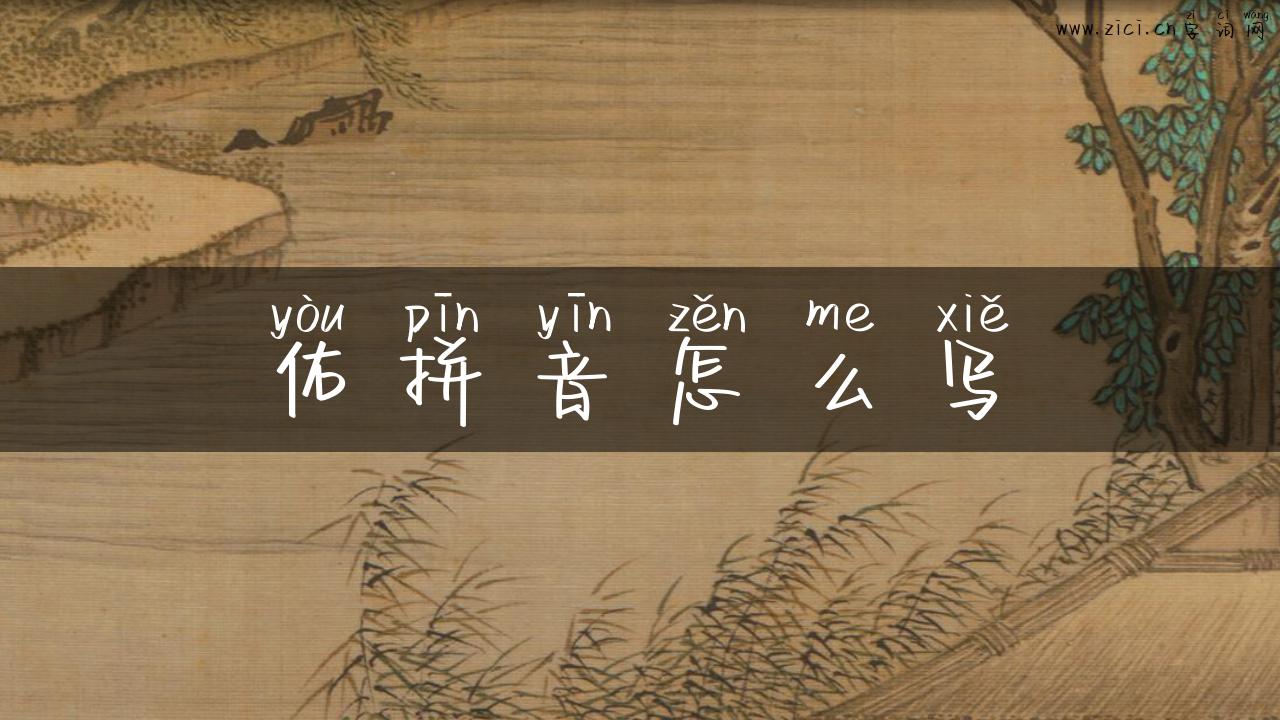 zì cí wǎng
www.zici.cn字词网
yòu pīn yīn zěn me xiě
佑拼音怎么写